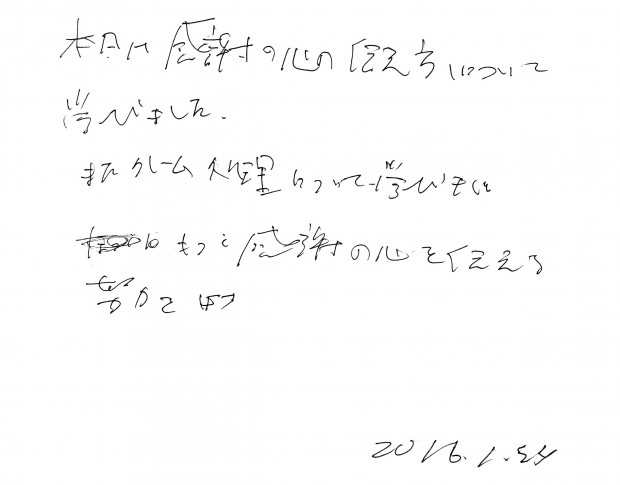 本日は感謝の心の伝え方について
学びました.
またクレーム処理について学びました
はもっと感謝の心を伝える
2016.1.24